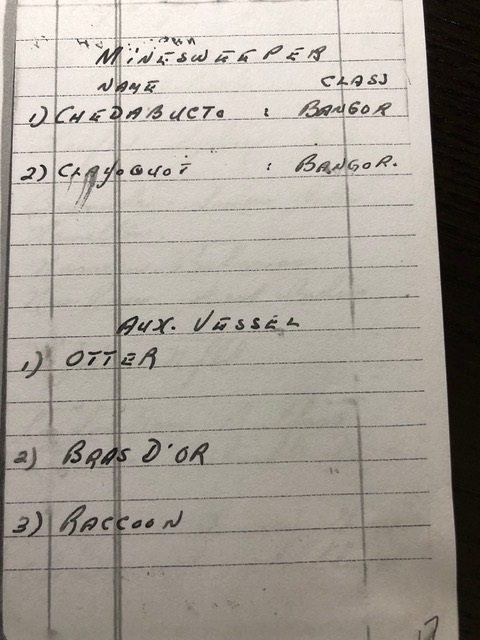 MINESWEEPER
NAME CLASS
1) CHEDABUCTO : BANGOR
2) CLAYOQUOT : BANGOR.
AUX. VESSEL
1) OTTER
2) BRAS D'OR
3) RACCOON